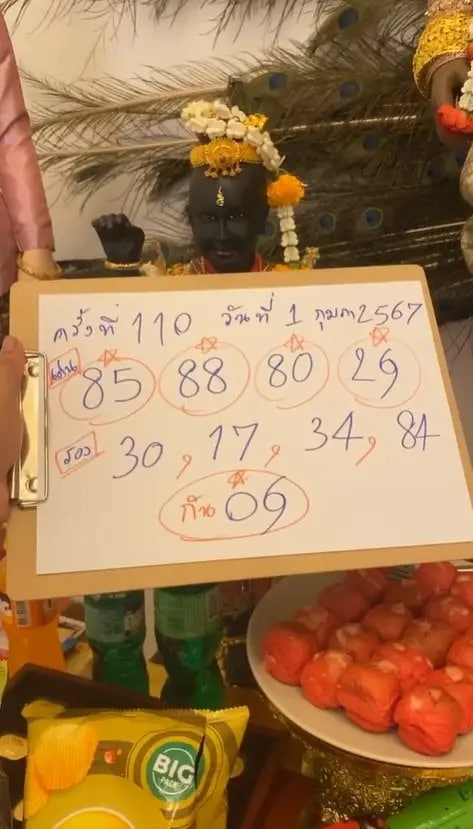 ครั้งที่ 110 วันที่ 1 กุมภา 2567
เด่น 85 88 80 29
รอง 30, 17, 34, 84
กัน 09
BIG
PACK